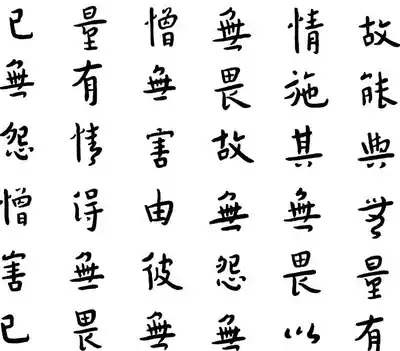 故能與無量有
情施其無畏以
無畏故無怨無
憎無害由彼無
量有情得無畏
已無怨憎害已